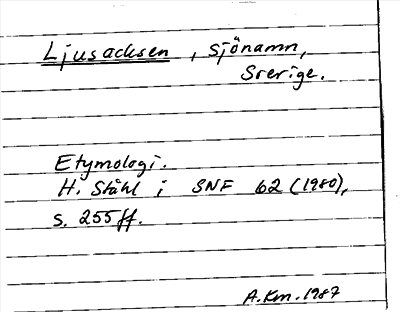 Ljusacksen, sjönamn,
Sverige.
Etymologi.
H. Ståhl i SNF 62 (1980),
s. 255 ff.
A.Km. 1987